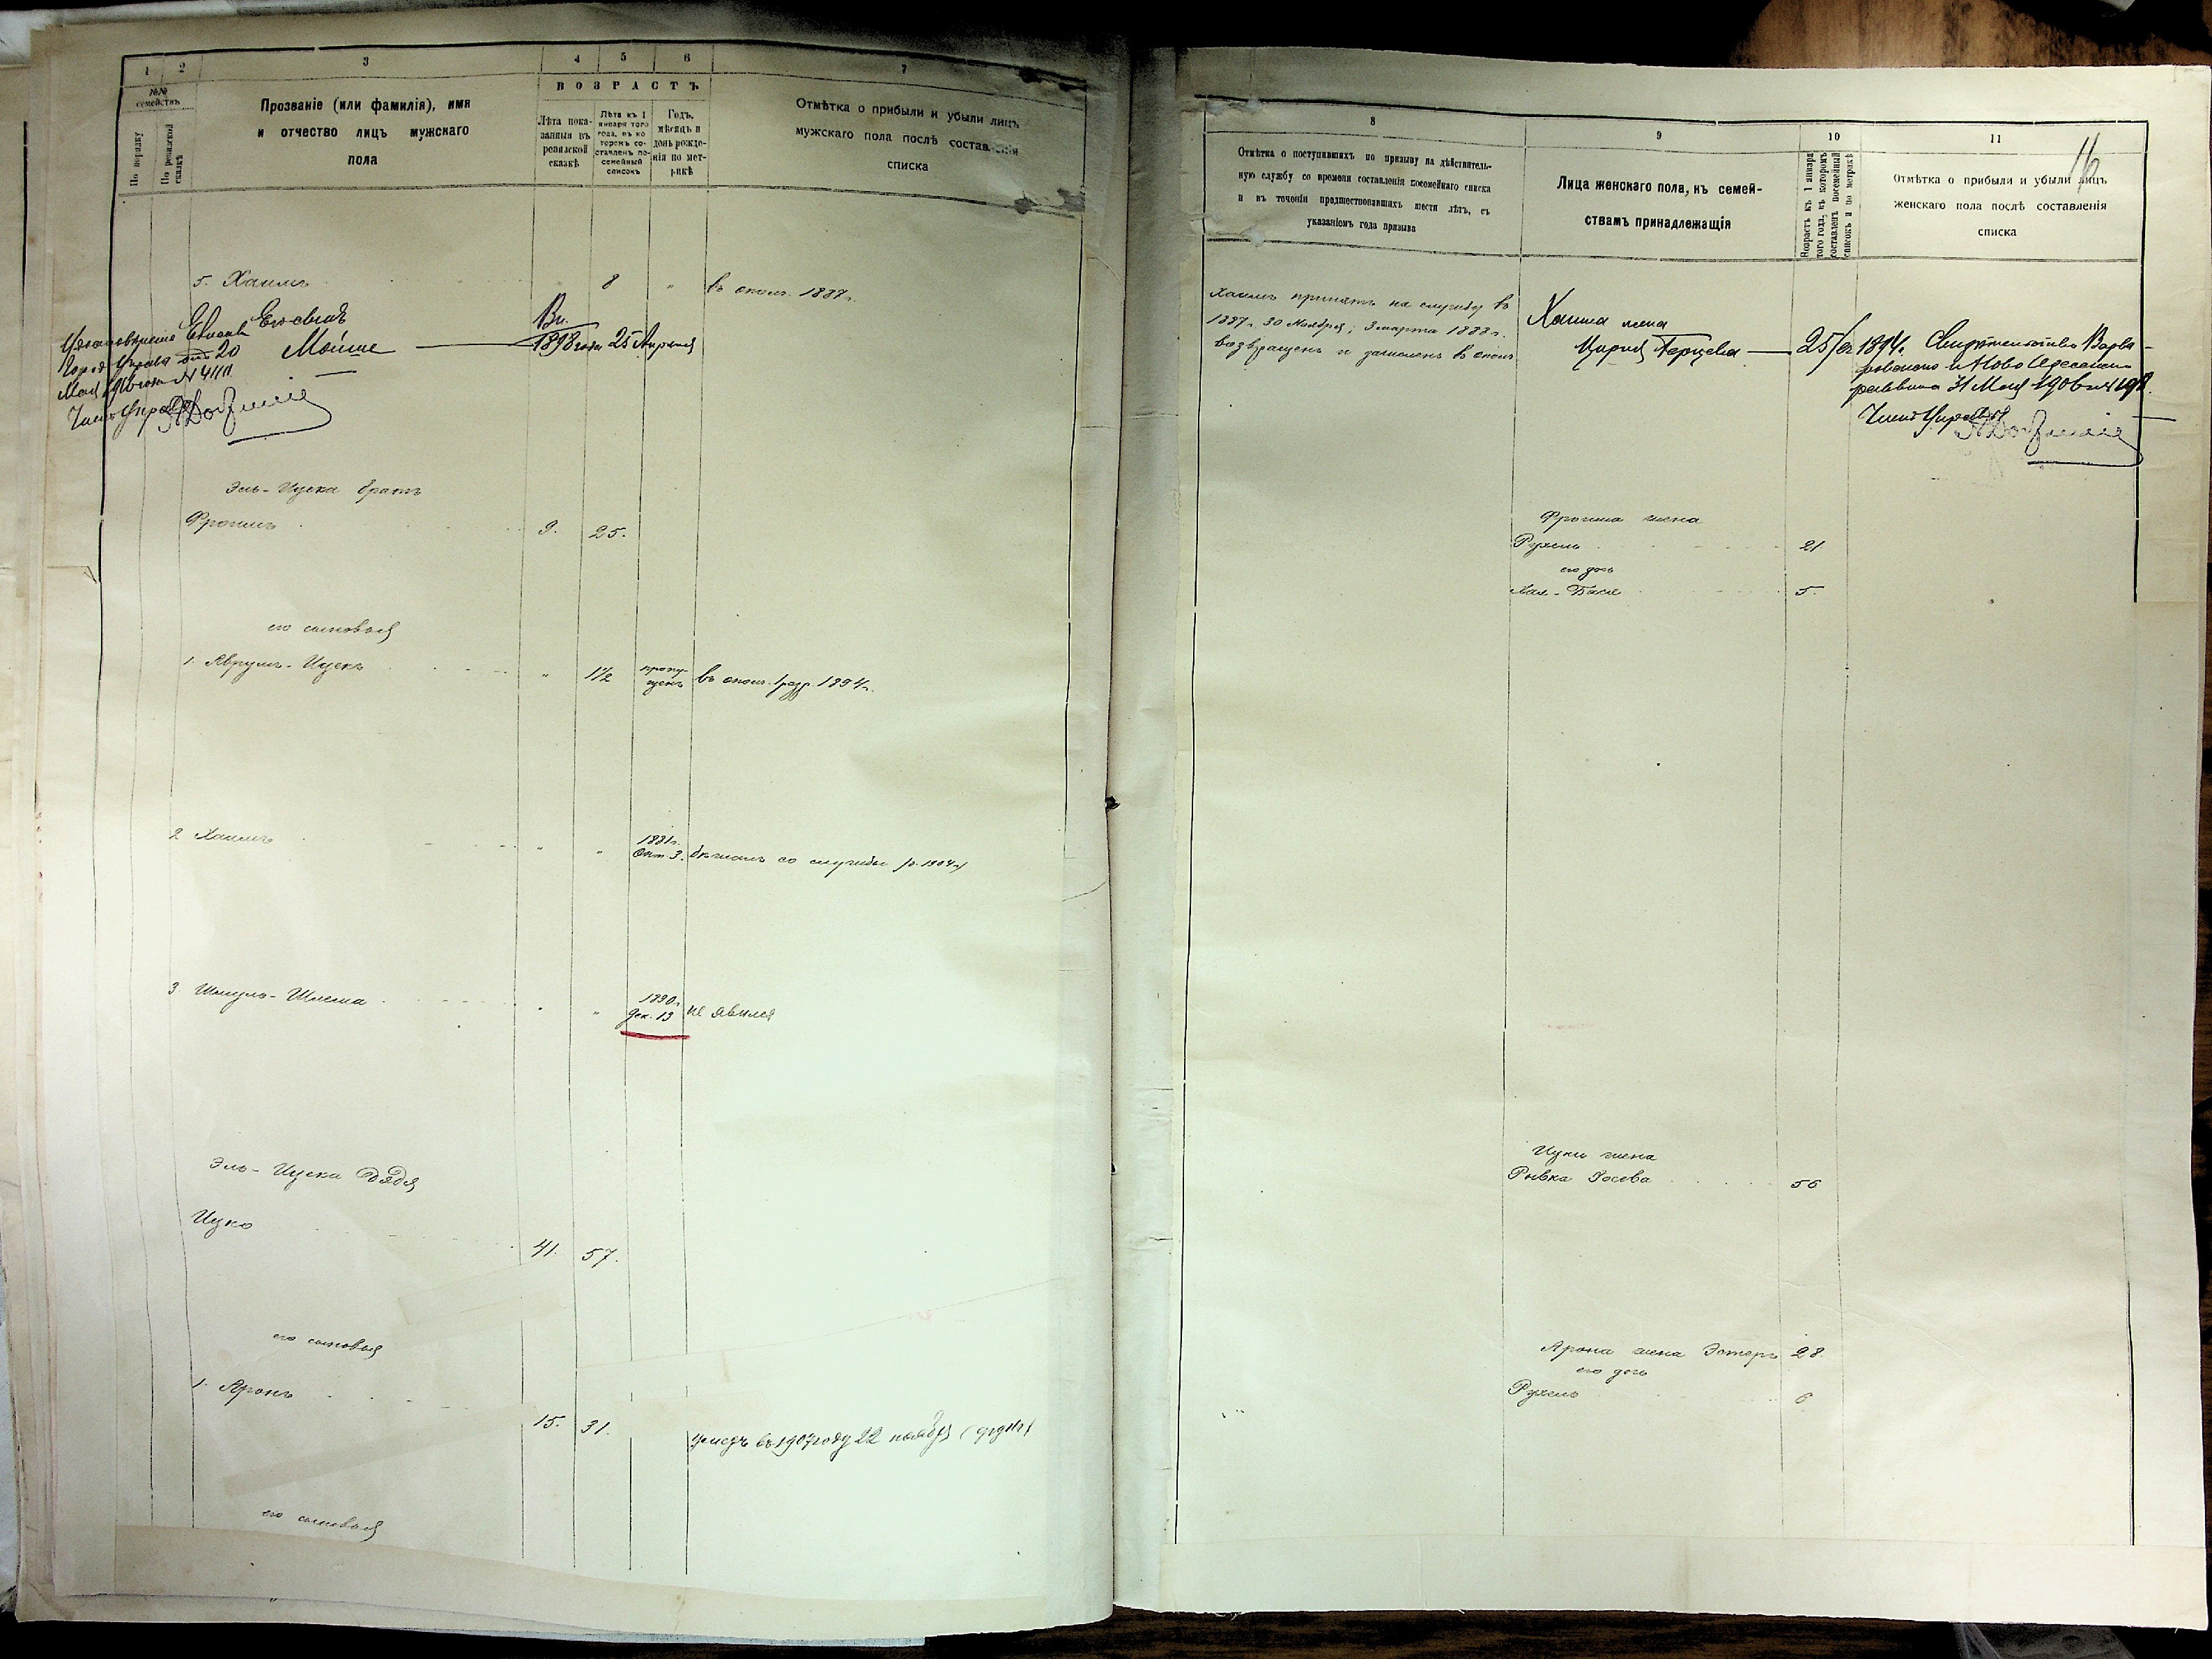 1 2 3 4 5 6 7
№№ семействъ
По порядку
По ревизской сказкѣ
Прозваніе (или фамилія), имя
и отчество лицъ мужскаго
пола
ВОЗРАСТЪ
Лѣта пока-
занныя въ
ревизской
сказкѣ
Лѣта къ 1
января того
года, въ ко-
торомъ со-
ставленъ по-
семейный
списокъ
Годъ,
мѣсяцъ и
день рожде-
нія по мет-
рикѣ
Отмѣтка о прибыли и убыли лицъ
мужскаго пола послѣ составленія
списка
5. Хаимъ 8 " въ ополч. 1887г.
Моише 1898 года 25 Апреля
Эль-Ицека братъ
Фроимъ 9. 25.
его сыновья
1. Аврумъ-Ицекъ " 1 1/2 пропу-
щенъ въ ополч. 1 разр. 1894г.
2 Хаимъ " " 1881г.
Окт. 3. бѣжалъ со службы /п. 1904г/
3 Шмуль-Шлема " " 1890г.
Дек. 13 не явился
Эль-Ицека Дядя
Ицко 41. 57.
его сыновья
1. Аронъ 15. 31. умеръ въ 1907 году 22 ноября
его сыновья
8 9 10 11
16
Отмѣтка о поступившихъ по призыву на дѣйствитель-
ную службу со времени составленія посемейнаго списка
и въ теченіи предшествовавшихъ шести лѣтъ, съ
указаніемъ года призыва
Лица женскаго пола, къ семей-
ствамъ принадлежащія
Возрастъ къ 1 января
того года, въ которомъ
составленъ посемейный
списокъ и по метрикѣ
Отмѣтка о прибыли и убыли лицъ
женскаго пола послѣ составленія
списка
Хаимъ принятъ на службу въ
1887г. 30 Ноября; 3 марта 1888г.
возвращенъ и зачисленъ в ополч.
Хаима жена
1894г.
31 Мая 1906
Фроима жена
Рухель 21.
его дочь
Хая-Бася 5.
Ицки жена
Ривка Іосева 56
Арона жена Эстеръ 28.
его дочь
Рухель 6